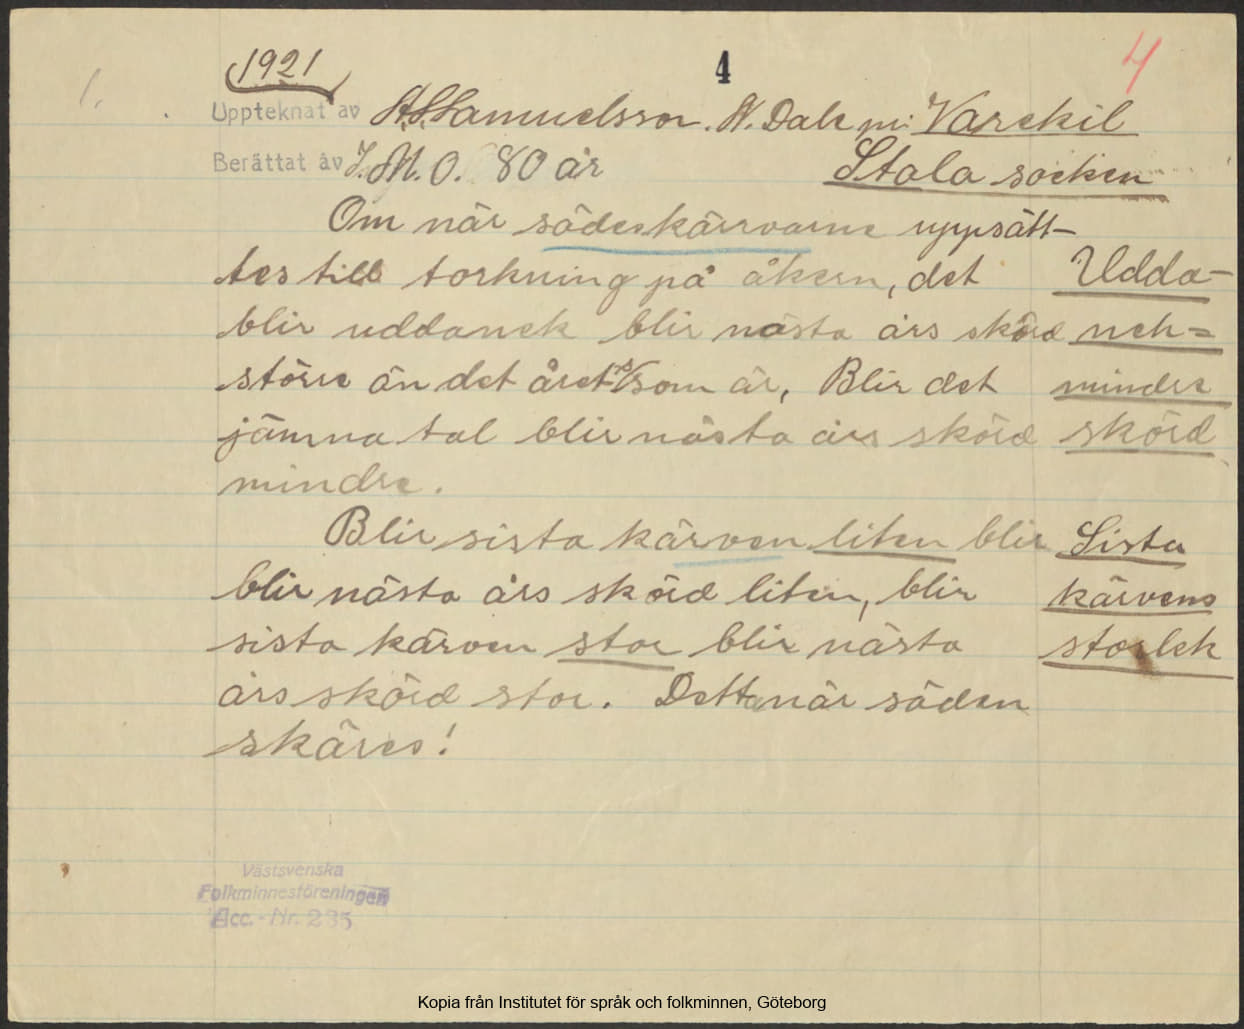 1.
1921
4
4
Uppteknat av A.S. Samuelsson. N. Dale pr: Varekil
Berättat av J.M.O. 80 år Stala socken
Om när sädeskärvarne uppsätt-
tes till torkning på åkern, det Udda-
blir uddanek blir nästa års skörd nek=
större än det året som är, Blir det mindre
jämna tal blir nästa års skörd skörd
mindre.
Blir sista kärven liten blir Sista
blir nästa års skörd liten, blir kärvens
sista kärven stor blir nästa storlek
års skörd stor. Detta när säden
skäres!
Västsvenska
Folkminnesföreningen
Acc. - Nr. 235
Kopia från Institutet för språk och folkminnen, Göteborg